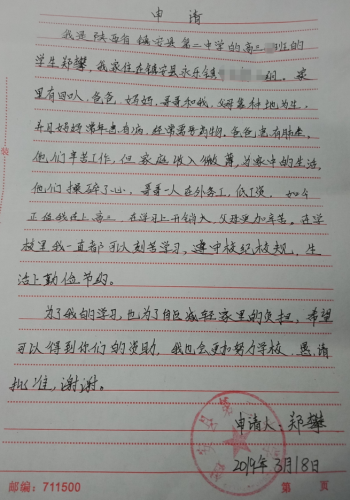 申 请
我是陕西省镇安县第二中学的高三 班的
学生郑攀，我家住在镇安县永乐镇 组。家
里有四口人，爸爸、妈妈、哥哥和我，父母务种地为生，
并且妈妈常年患有病，经常需要药物，爸爸患有肺
他们辛苦工作，但家庭收入微薄，为家中的生活，
他们操碎了心，哥哥一人在外务工，低工资，如今
正值我上高三，在学习上开销大，父母更加辛苦。在学
校里我一直都可以刻苦学习，遵守校纪校规，生
活上勤俭节约。
为了我的学习，也为了能减轻家里的负担，希望
可以得到你们的资助，我也会更加努力学校，恳请
批准，谢谢。
申请人：郑攀
2019年3月18日
邮编：711500
第 页